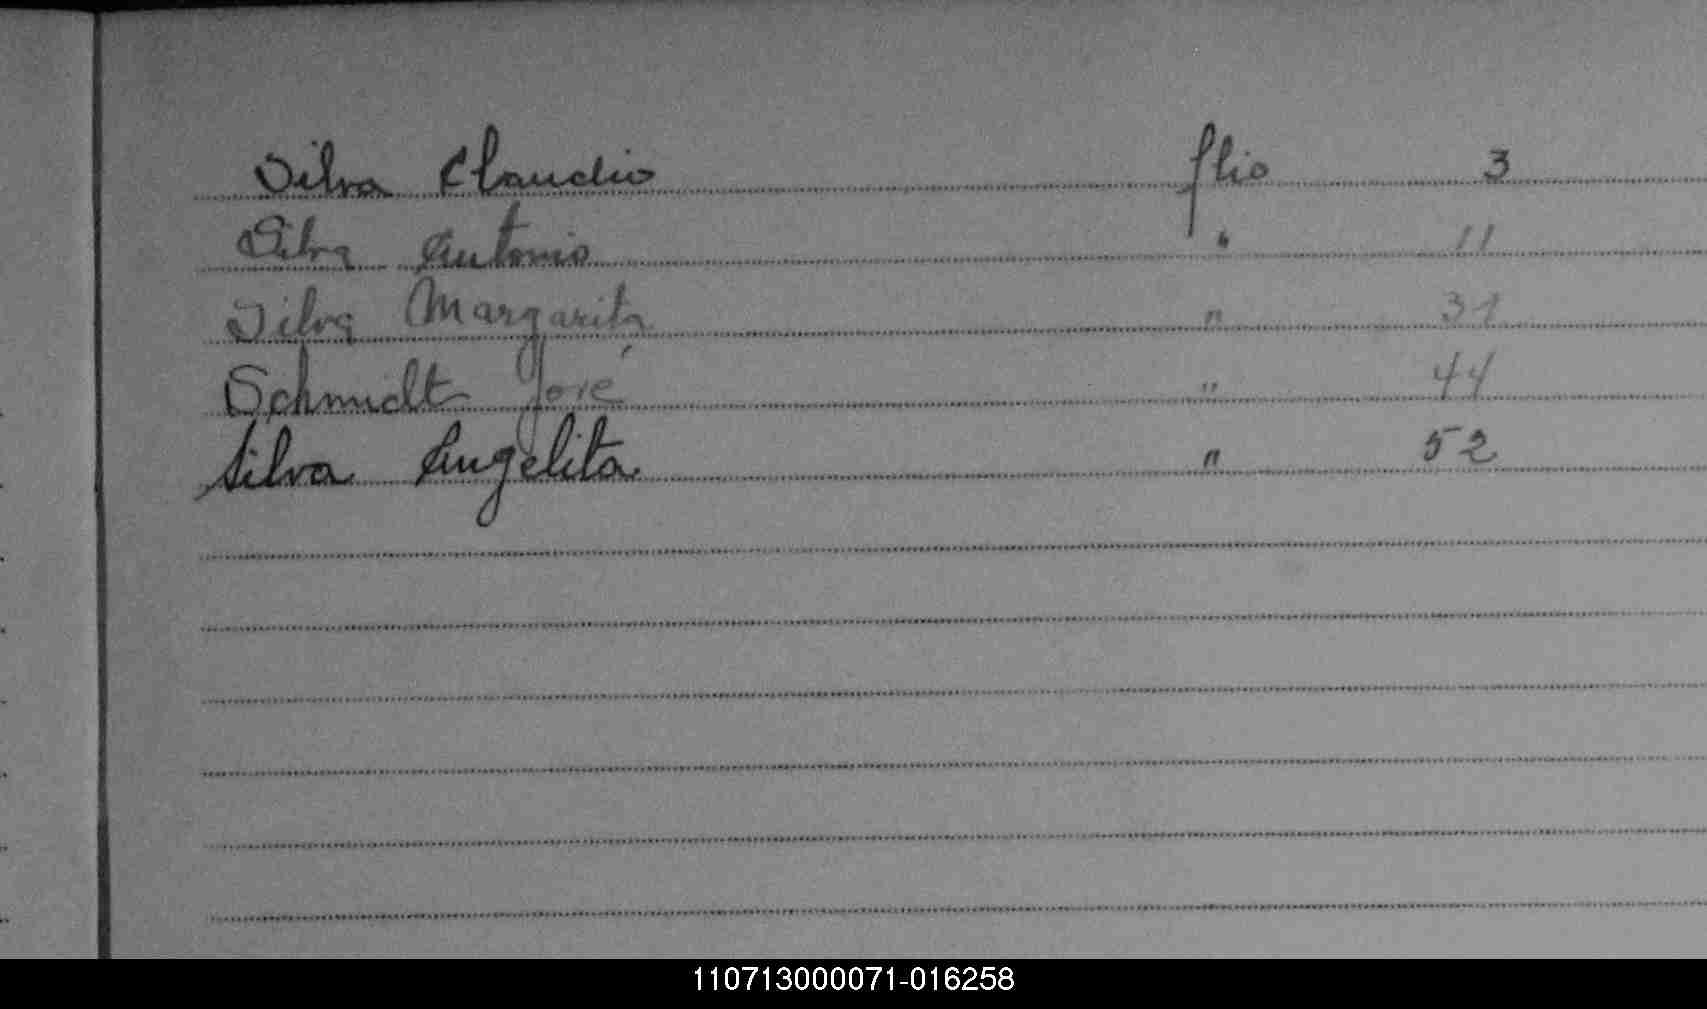 Silva Claudio flio 3
Silva Antonio " 11
Silva Margarita " 31
Schmidt José " 44
Silva Angelita " 52
110713000071-016258